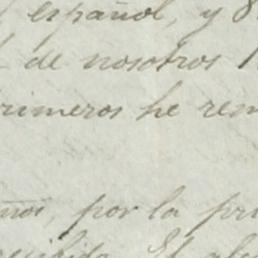 español, y
de nosotros
rimeros he rem
por la pri
El